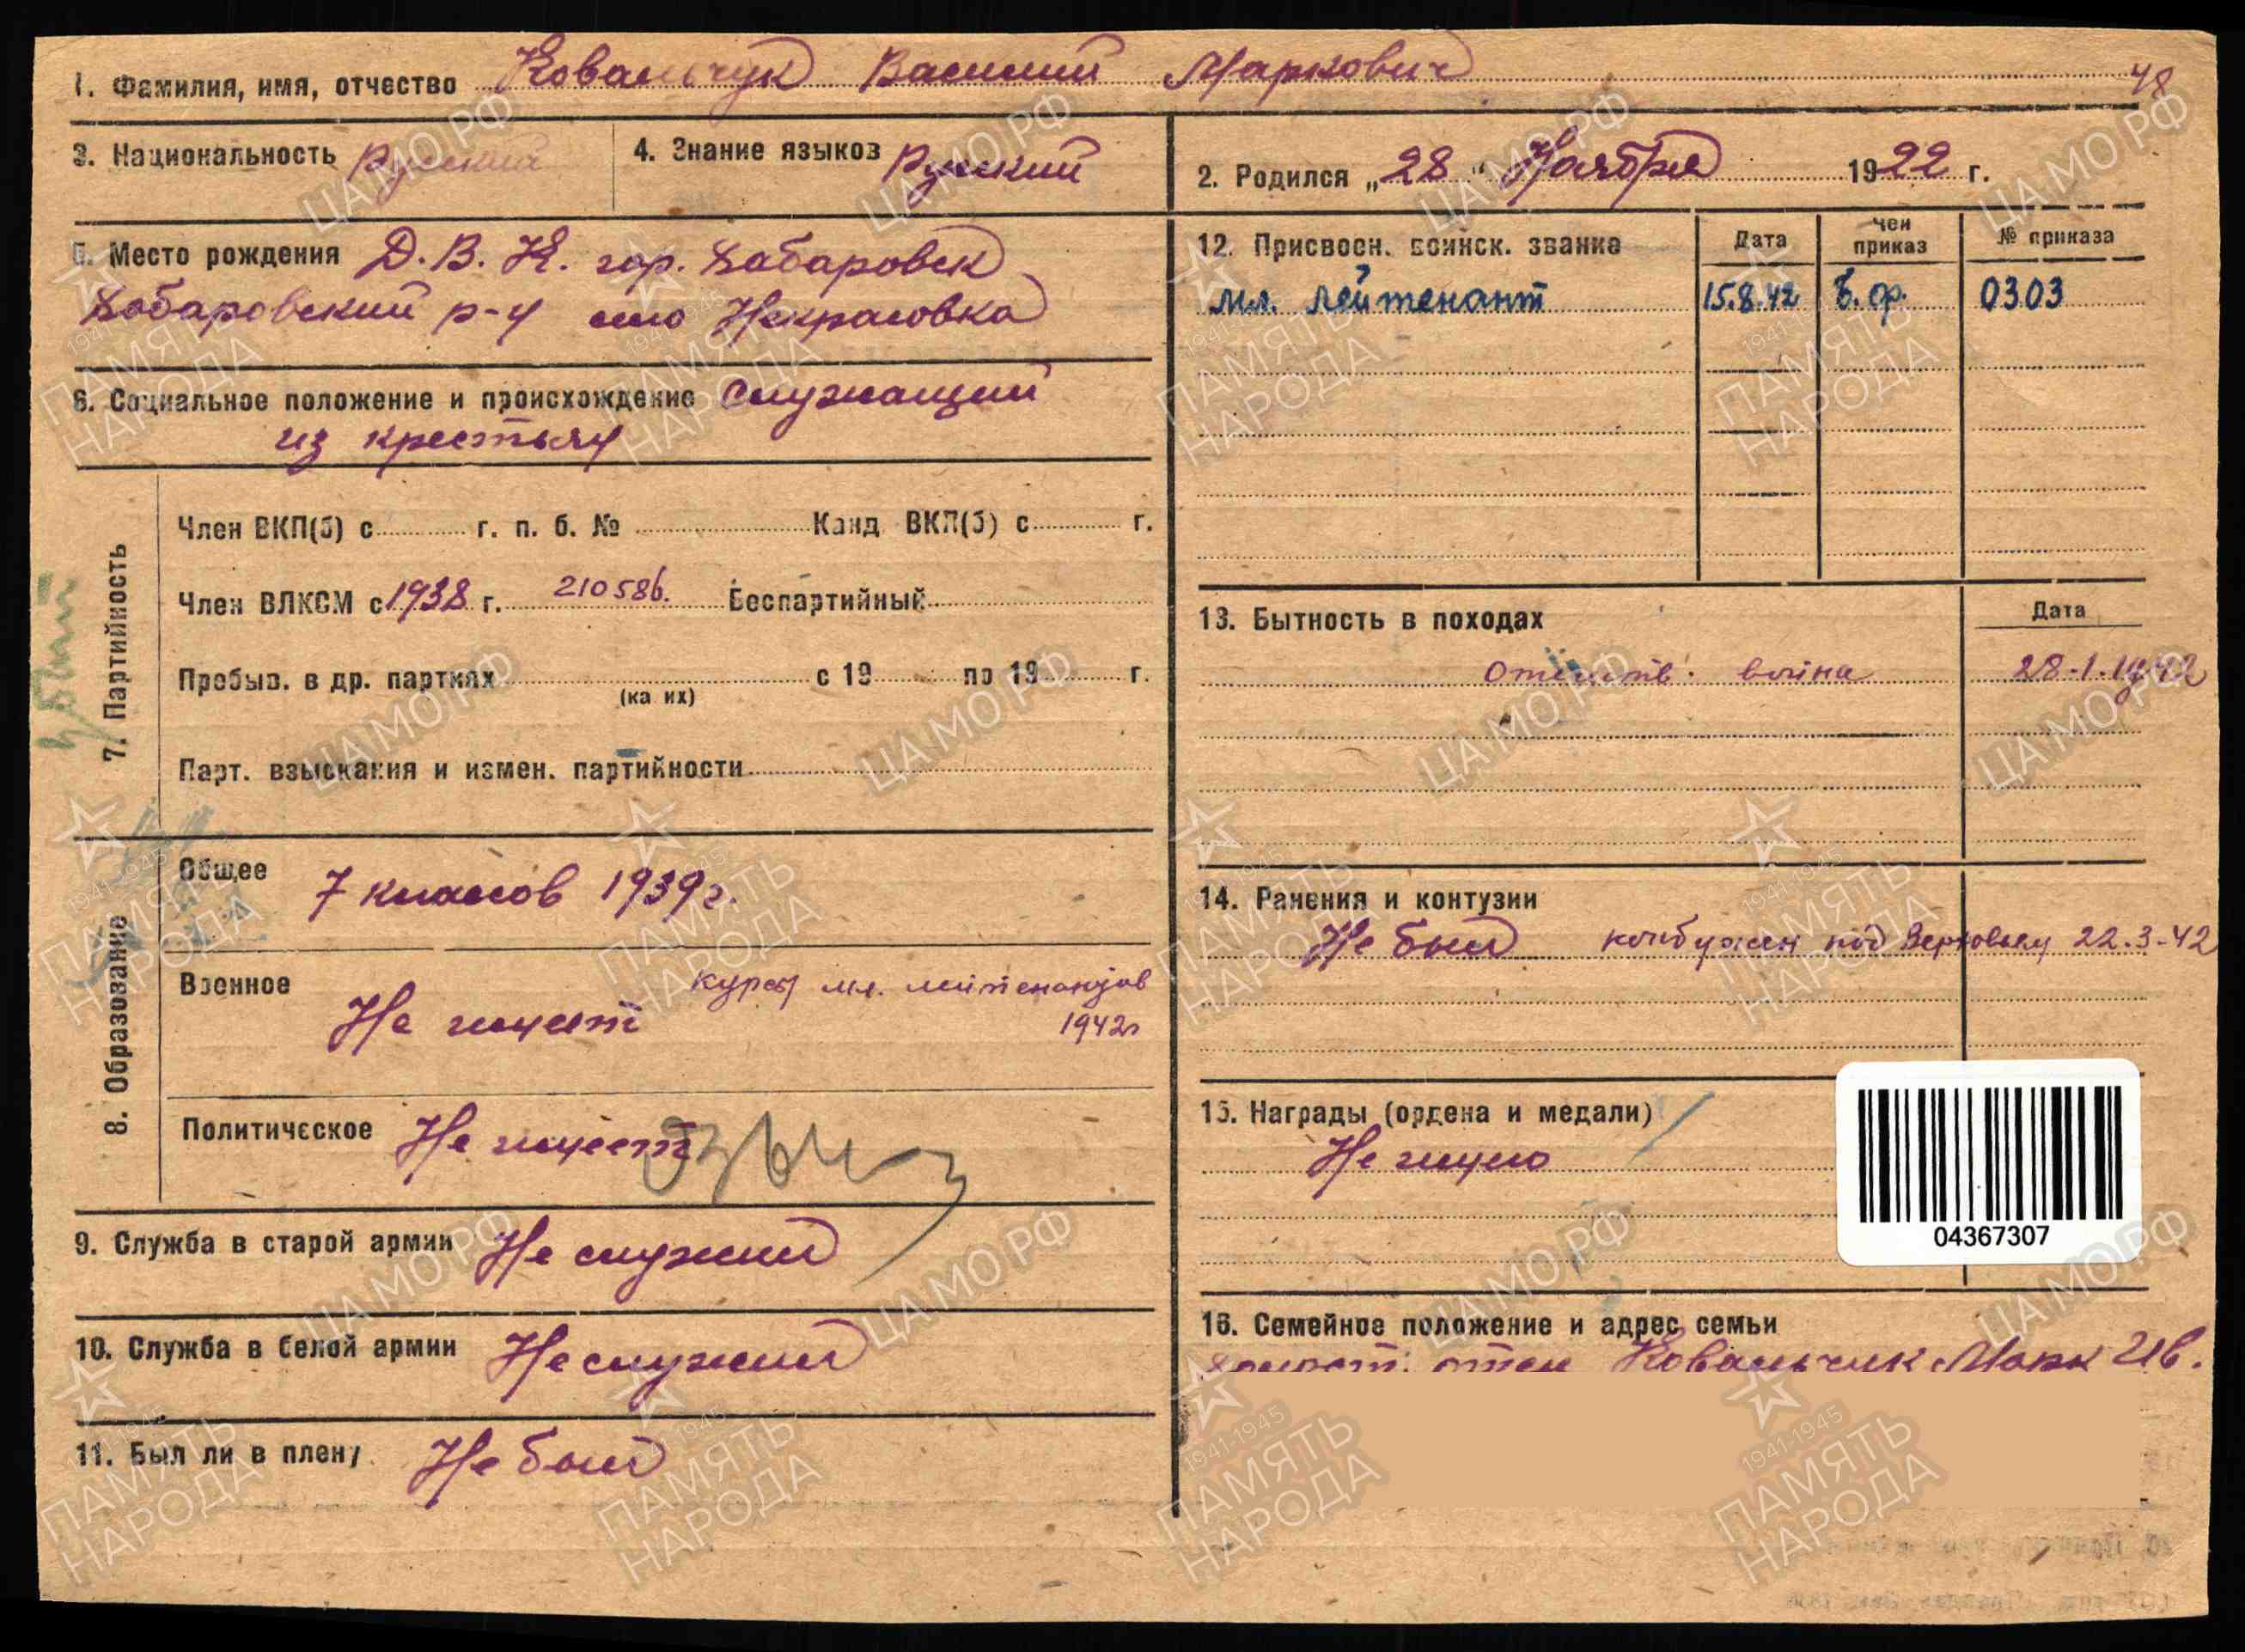 1. Фамилия, имя, отчество Ковальчук Василий Маркович
48
3. Национальность Русский
4. Знание языков Русский
2. Родился „28" Ноября 1922 г.
5. Место рождения Д.В.К. гор. Хабаровск
Хабаровский р-н село Некрасовка
6. Социальное положение и происхождение Служащий
из крестьян
7. Партийность
Член ВКП(б) с г. п. б. № Канд ВКП(б) с г.
Член ВЛКСМ с 1938 г. 210586. Беспартийный
Пребыв. в др. партиях с 19 по 19 г.
(ка их)
Парт. взыскания и измен. партийности
убит
8. Образование
Общее 7 классов 1939г.
Военное Не имеет курсы мл. лейтенантов
1942г
Политическое Не имеет
9. Служба в старой армии Не служил
10. Служба в белой армии Не служил
11. Был ли в плену Не был
12. Присвоен. воинск. звание Дата Чей приказ № приказа
Мл. лейтенант 15.8.42 Б.ф. 0303
13. Бытность в походах Дата
Отечеств. война 28-1-1942
14. Ранения и контузии
Не был контужен под Верховьем 22.3-42
15. Награды (ордена и медали)
Не имею
04367307
16. Семейное положение и адрес семьи
холост. отец Ковальчук Марк Ив.
ЦАМО РФ
1941-1945
ПАМЯТЬ
НАРОДА